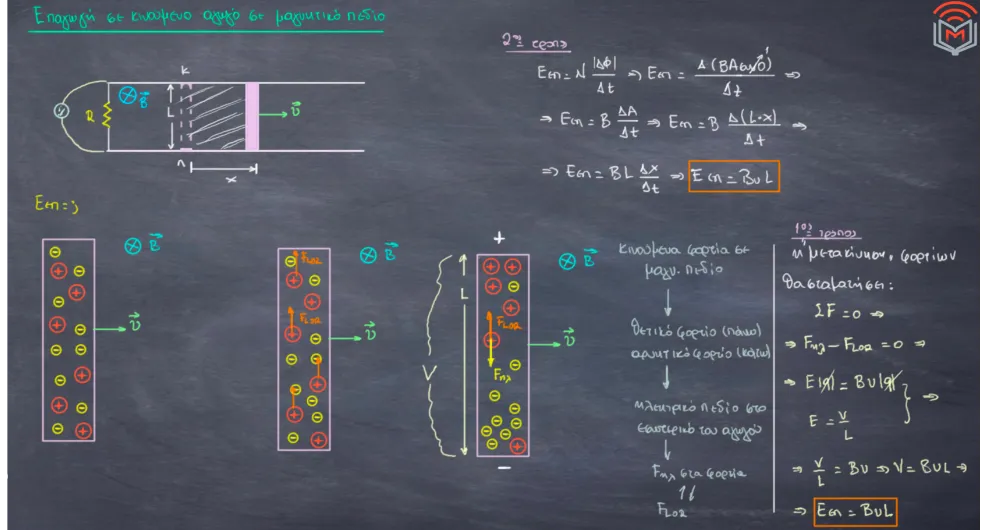 Επαγωγή σε κινούμενο αγωγό σε μαγνητικό πεδίο
K
B
R
L
υ
V
Λ
x
Εεπ = ;
B
υ
B
FLOR
FLOR
υ
+
B
L
FLOR
V
Fηλ
υ
−
2ος τρόπος
Εεπ = N |ΔΦ| / Δt ⇒ Εεπ = Δ(ΒΑσυν0) / Δt ⇒
1
⇒ Εεπ = B ΔA / Δt ⇒ Εεπ = B Δ(L·x) / Δt ⇒
⇒ Εεπ = BL Δx / Δt ⇒ Εεπ = BυL
κινούμενα φορτία σε
μαγν. πεδίο
θετικό φορτίο (πάνω)
αρνητικό φορτίο (κάτω)
ηλεκτρικό πεδίο στο
εσωτερικό του αγωγού
Fηλ στα φορτία
↑↓
FLOR
1ος τρόπος
η μετακίνηση φορτίων
θα σταματήσει:
ΣF = 0 ⇒
⇒ Fηλ − FLOR = 0 ⇒
⇒ E|q| = Bυ|q|
E = V / L
⇒
⇒ V / L = Bυ ⇒ V = BυL ⇒
⇒ Εεπ = BυL